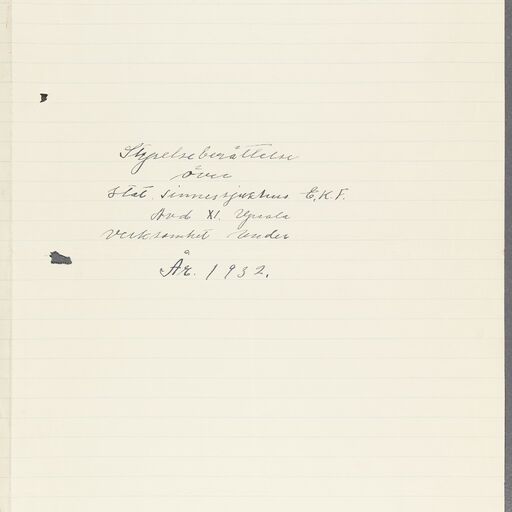 Styrelseberättelse
över
Stat. Sinnessjukhus E.K.F.
Avd XI. Upsala
Verksamhet under
År. 1932.